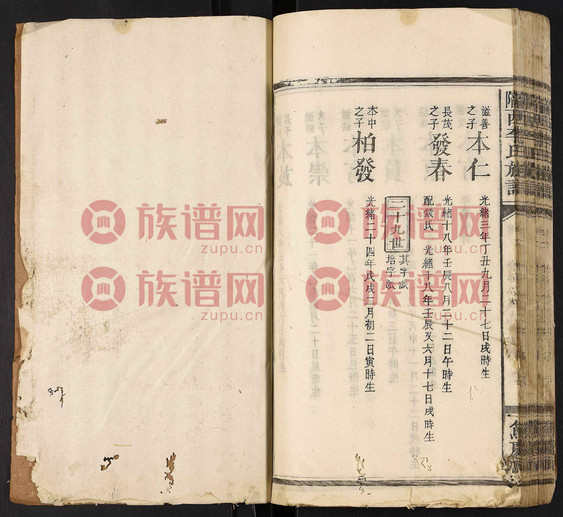 隴西李氏族譜
謚善之子 本仁
光緒三年丁丑九月二十七日戌時生
長茂之子 發春
光緒十八年壬辰八月二十二日午時生
氏 光緒十八年壬辰又六月十七日戌時生
二十九世
本中之子 柏發
光緒二十四年戊戌二月初二日寅時生
族谱网
zupu.cn
族谱网
zupu.cn
族谱网
zupu.cn
族谱网
zupu.cn